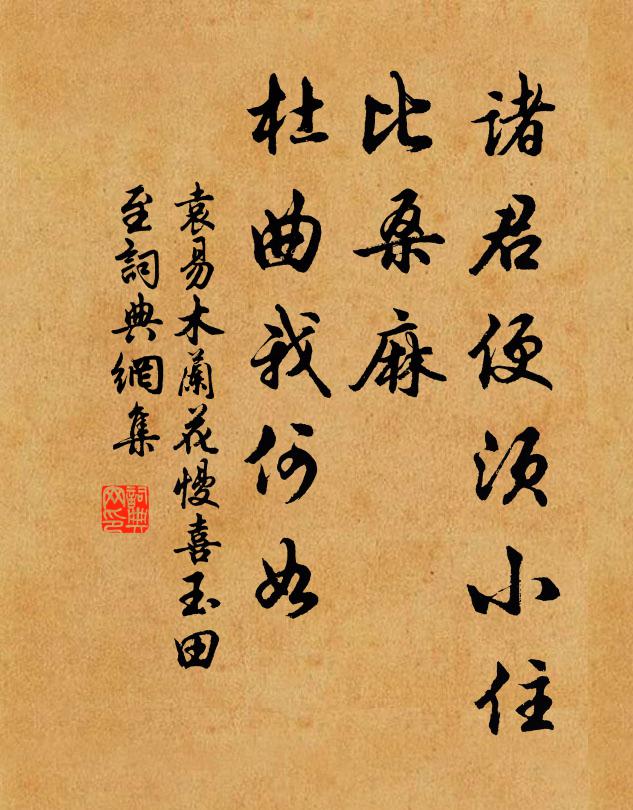 諸君便須小住
比桑麻
杜曲我何如
袁易木蘭花慢喜玉田
至詞典網集
詞典
网印